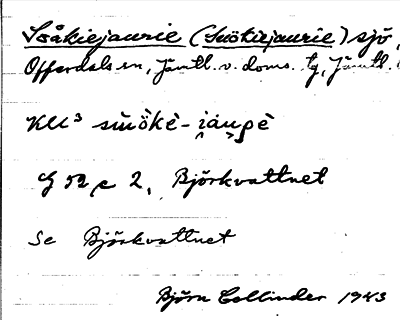 Snåkiejaurie (Snökiejaurie) sjö,
Offerdals sn, Jämtl. v. doms. tg, Jämtl.
KU³ snöke-
G 52 c 2, Björkvattnet
Se Björkvattnet
Björn Collinder 1943